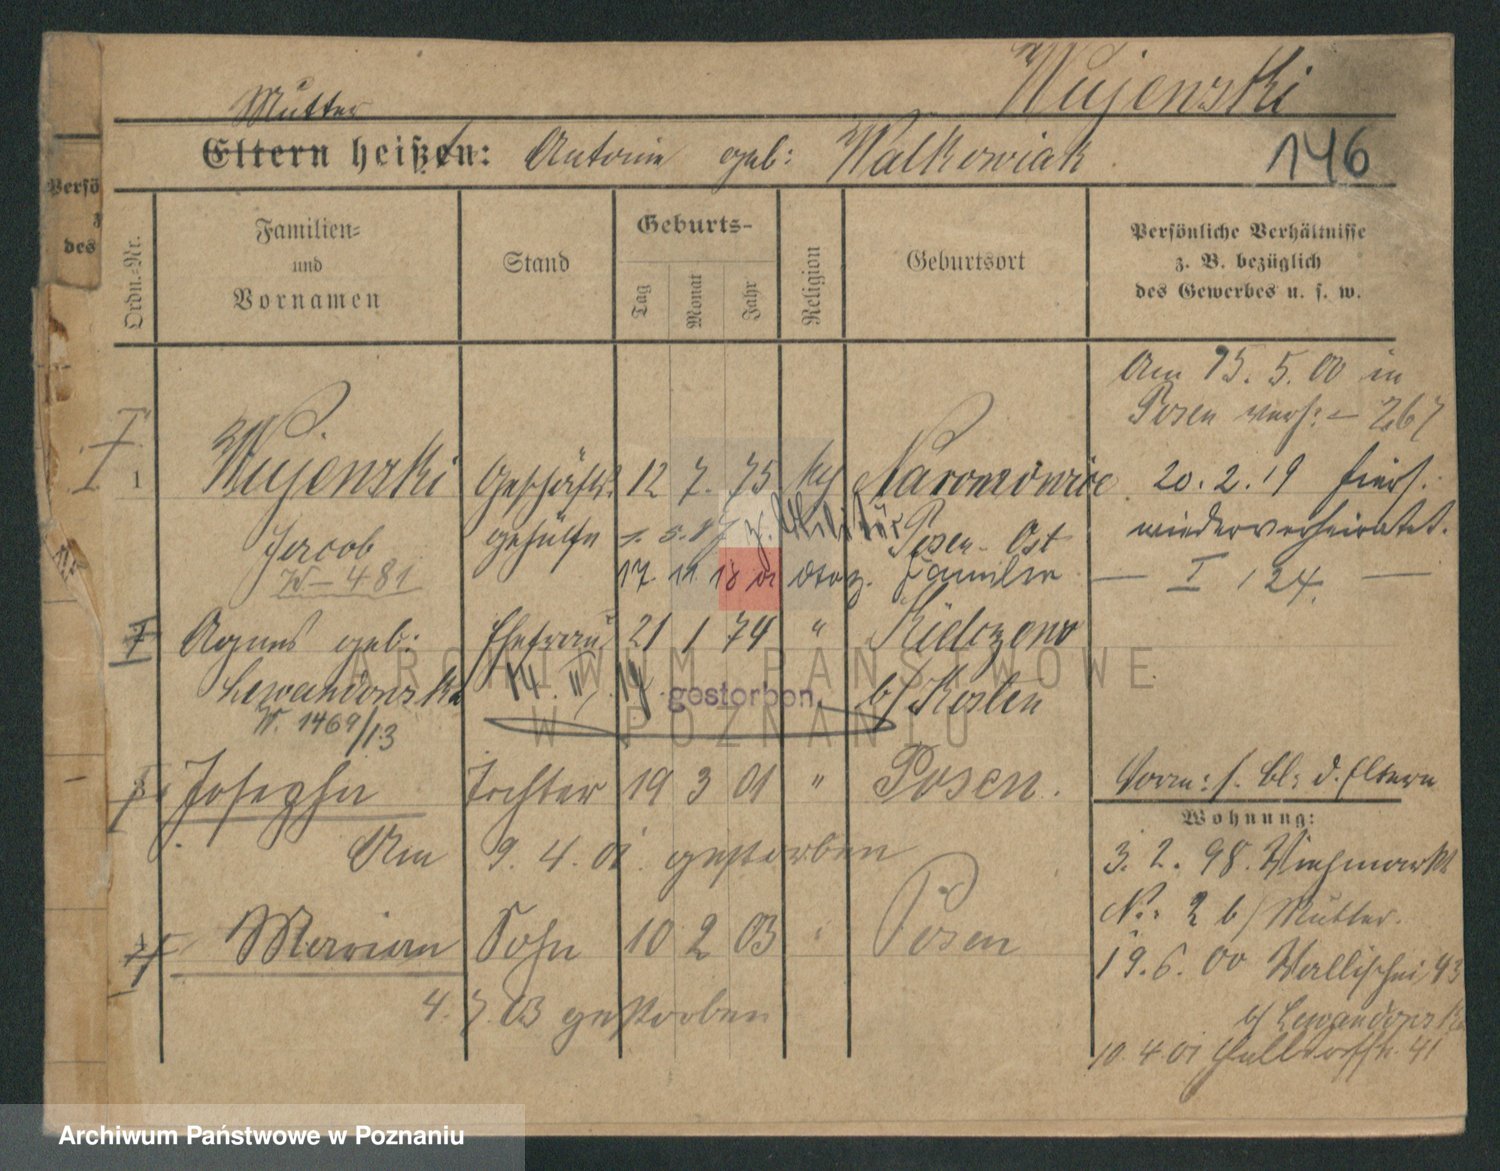 Wujenski
Mutter
Eltern heißen: Antonie geb: Walkowiak
146
Ordn.-Nr.
Familien- und Vornamen
Stand
Geburts-
Tag
Monat
Jahr
Religion
Geburtsort
Persönliche Verhältnisse
z. B. bezüglich
des Gewerbes u. s. w.
Am 15. 5. 00 in
Posen verh: – 767
1 Wujenski Geschäfts- 12 7. 75 kth Naramowice 20. 2. 19 hiers.
Jacob gehülfe z. Militär Posen-Ost wiederverheiratet.
W – 481 17. 11. 18 Familie – I 124. –
Agnes geb: Ehefrau 21 1 74 " Kielczewo
Lewandowska 14. 19 gestorben. b/ Kosten
W. 1469/13
3 Josepha Tochter 19 3 01 " Posen. Vorm: s. bl: d. Eltern
Am 9. 4. 01. gestorben
Wohnung:
3. 2. 98. Viehmarkt
No: 2 b/ Mutter.
4 Marian Sohn 10 2 03 " Posen
19. 6. 00 Wallischei 43
4. 7. 03 gestorben
b/ Lewandowska
10. 4 01 Halldorfstr. 41
Persö
z
des
ARCHIWUM PAŃSTWOWE
W POZNANIU
Archiwum Państwowe w Poznaniu